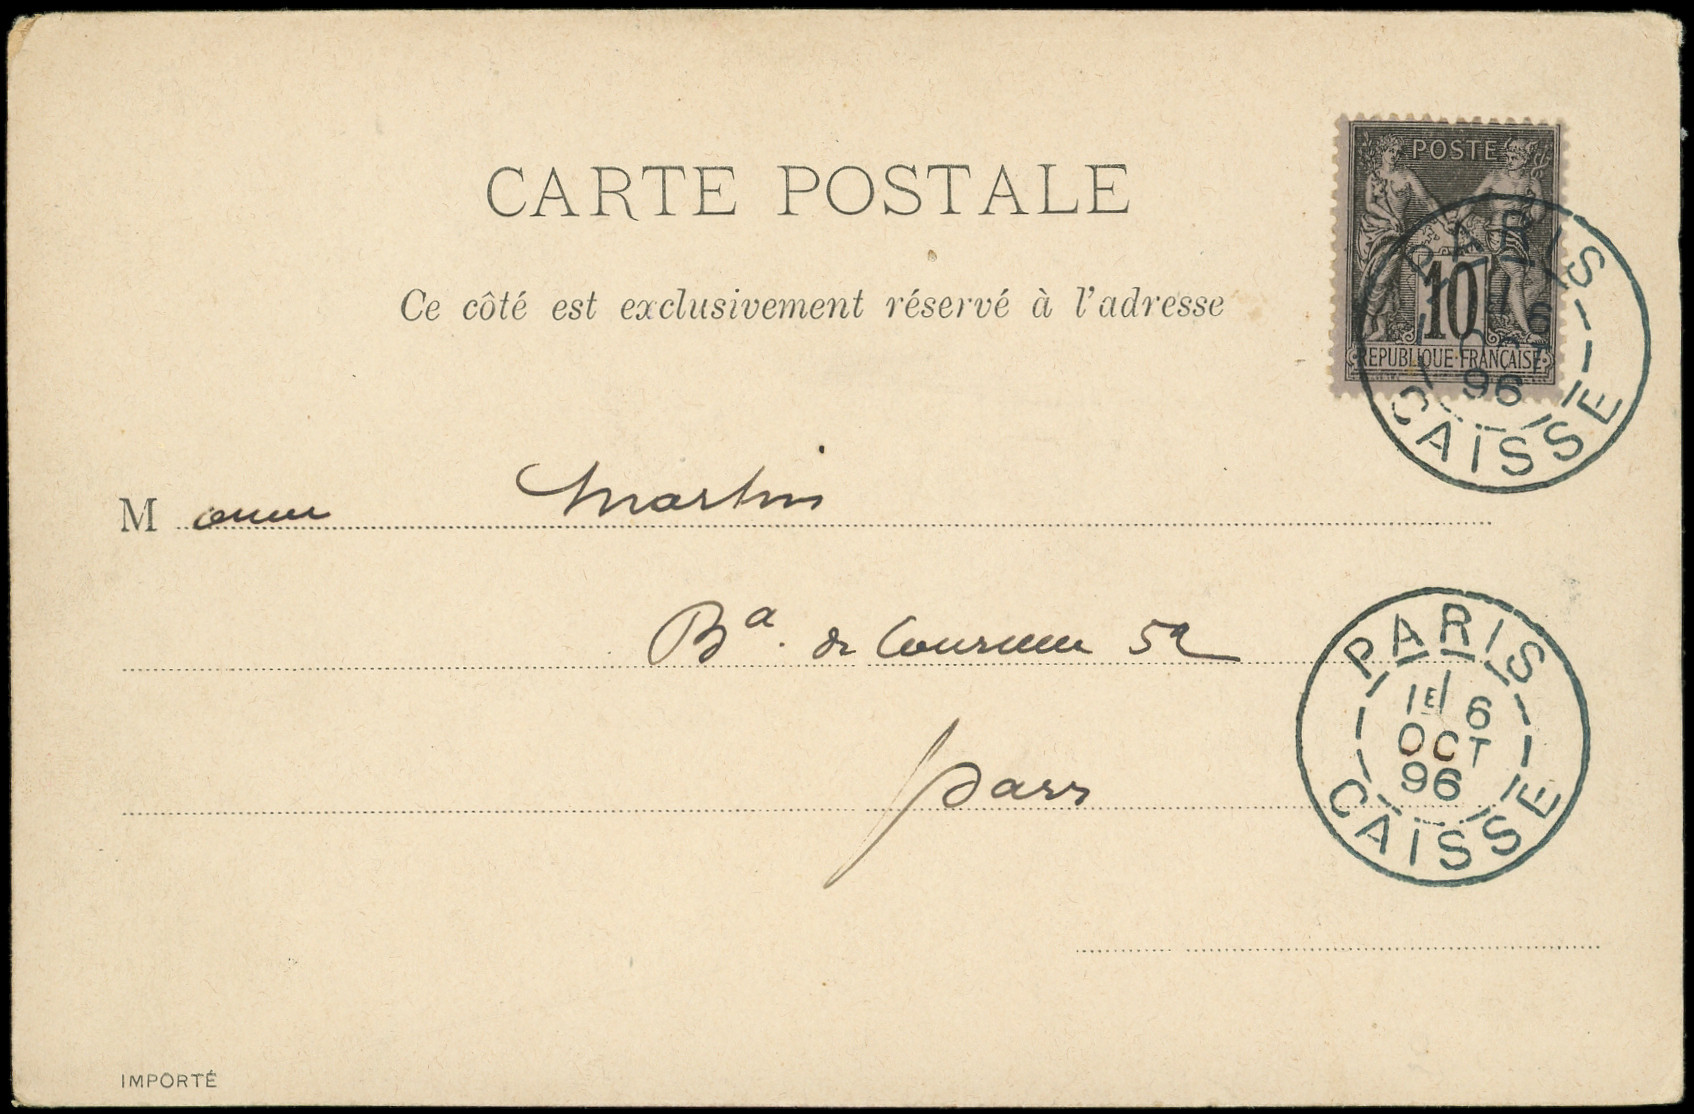 CARTE POSTALE
POSTE
10
REPUBLIQUE FRANÇAISE
Ce côté est exclusivement réservé à l'adresse
PARIS
6
OCT
96
CAISSE
M Martin
Bd. de 52
Paris
PARIS
1E 6
OCT
96
CAISSE
IMPORTÉ